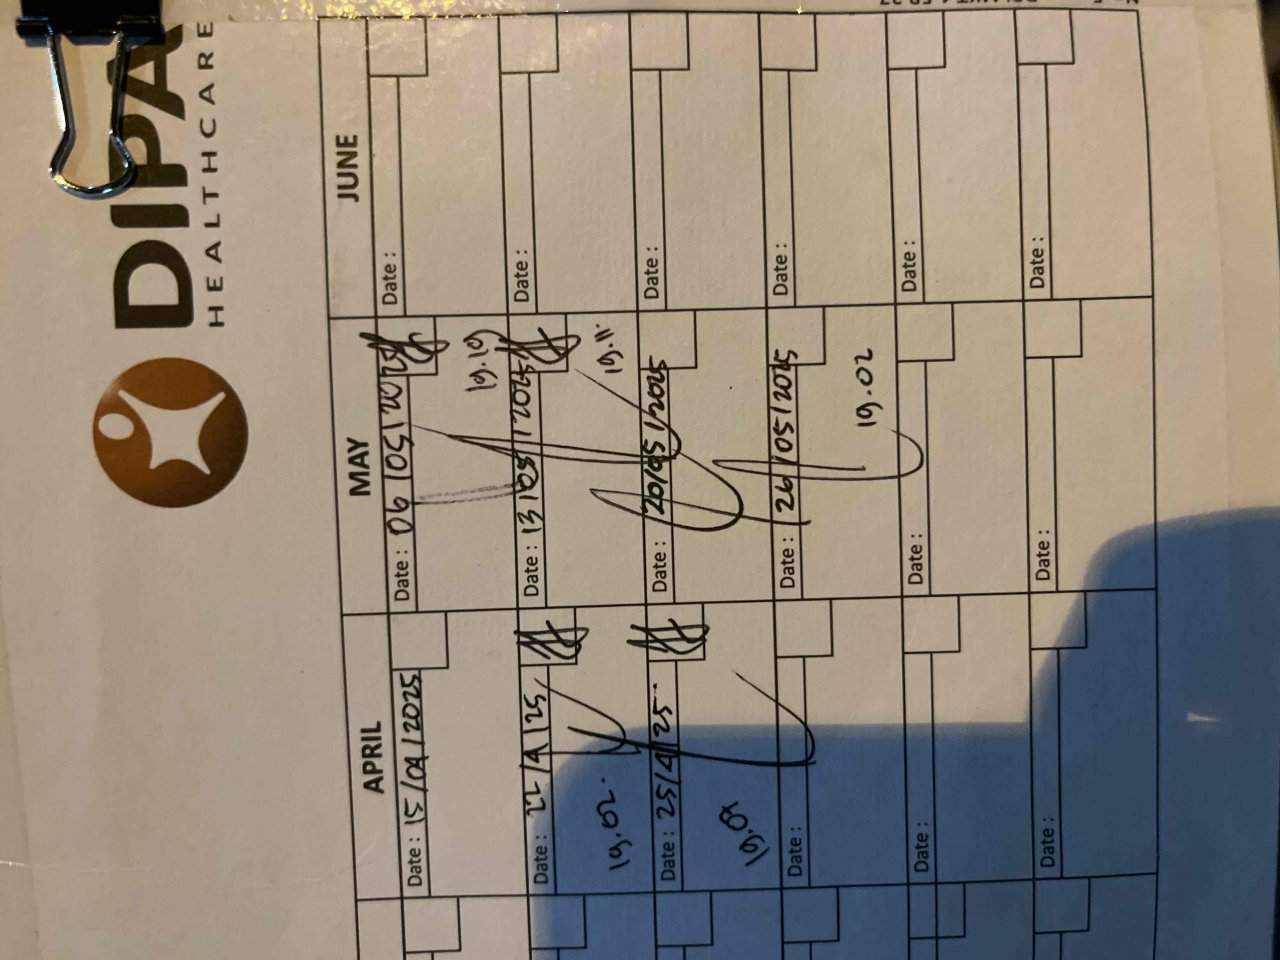 DIPA
HEALTHCARE
APRIL MAY JUNE
Date : 15/04/2025
Date : 06/05/2025
Date :
Date : 22/4/25
19.02
Date : 13/05/2025
19.19
Date :
Date : 25/4/25
Date : 20/05/2025
19.11
Date :
Date :
Date : 26/05/2025
19.02
Date :
Date :
Date :
Date :
Date :
Date :
Date :